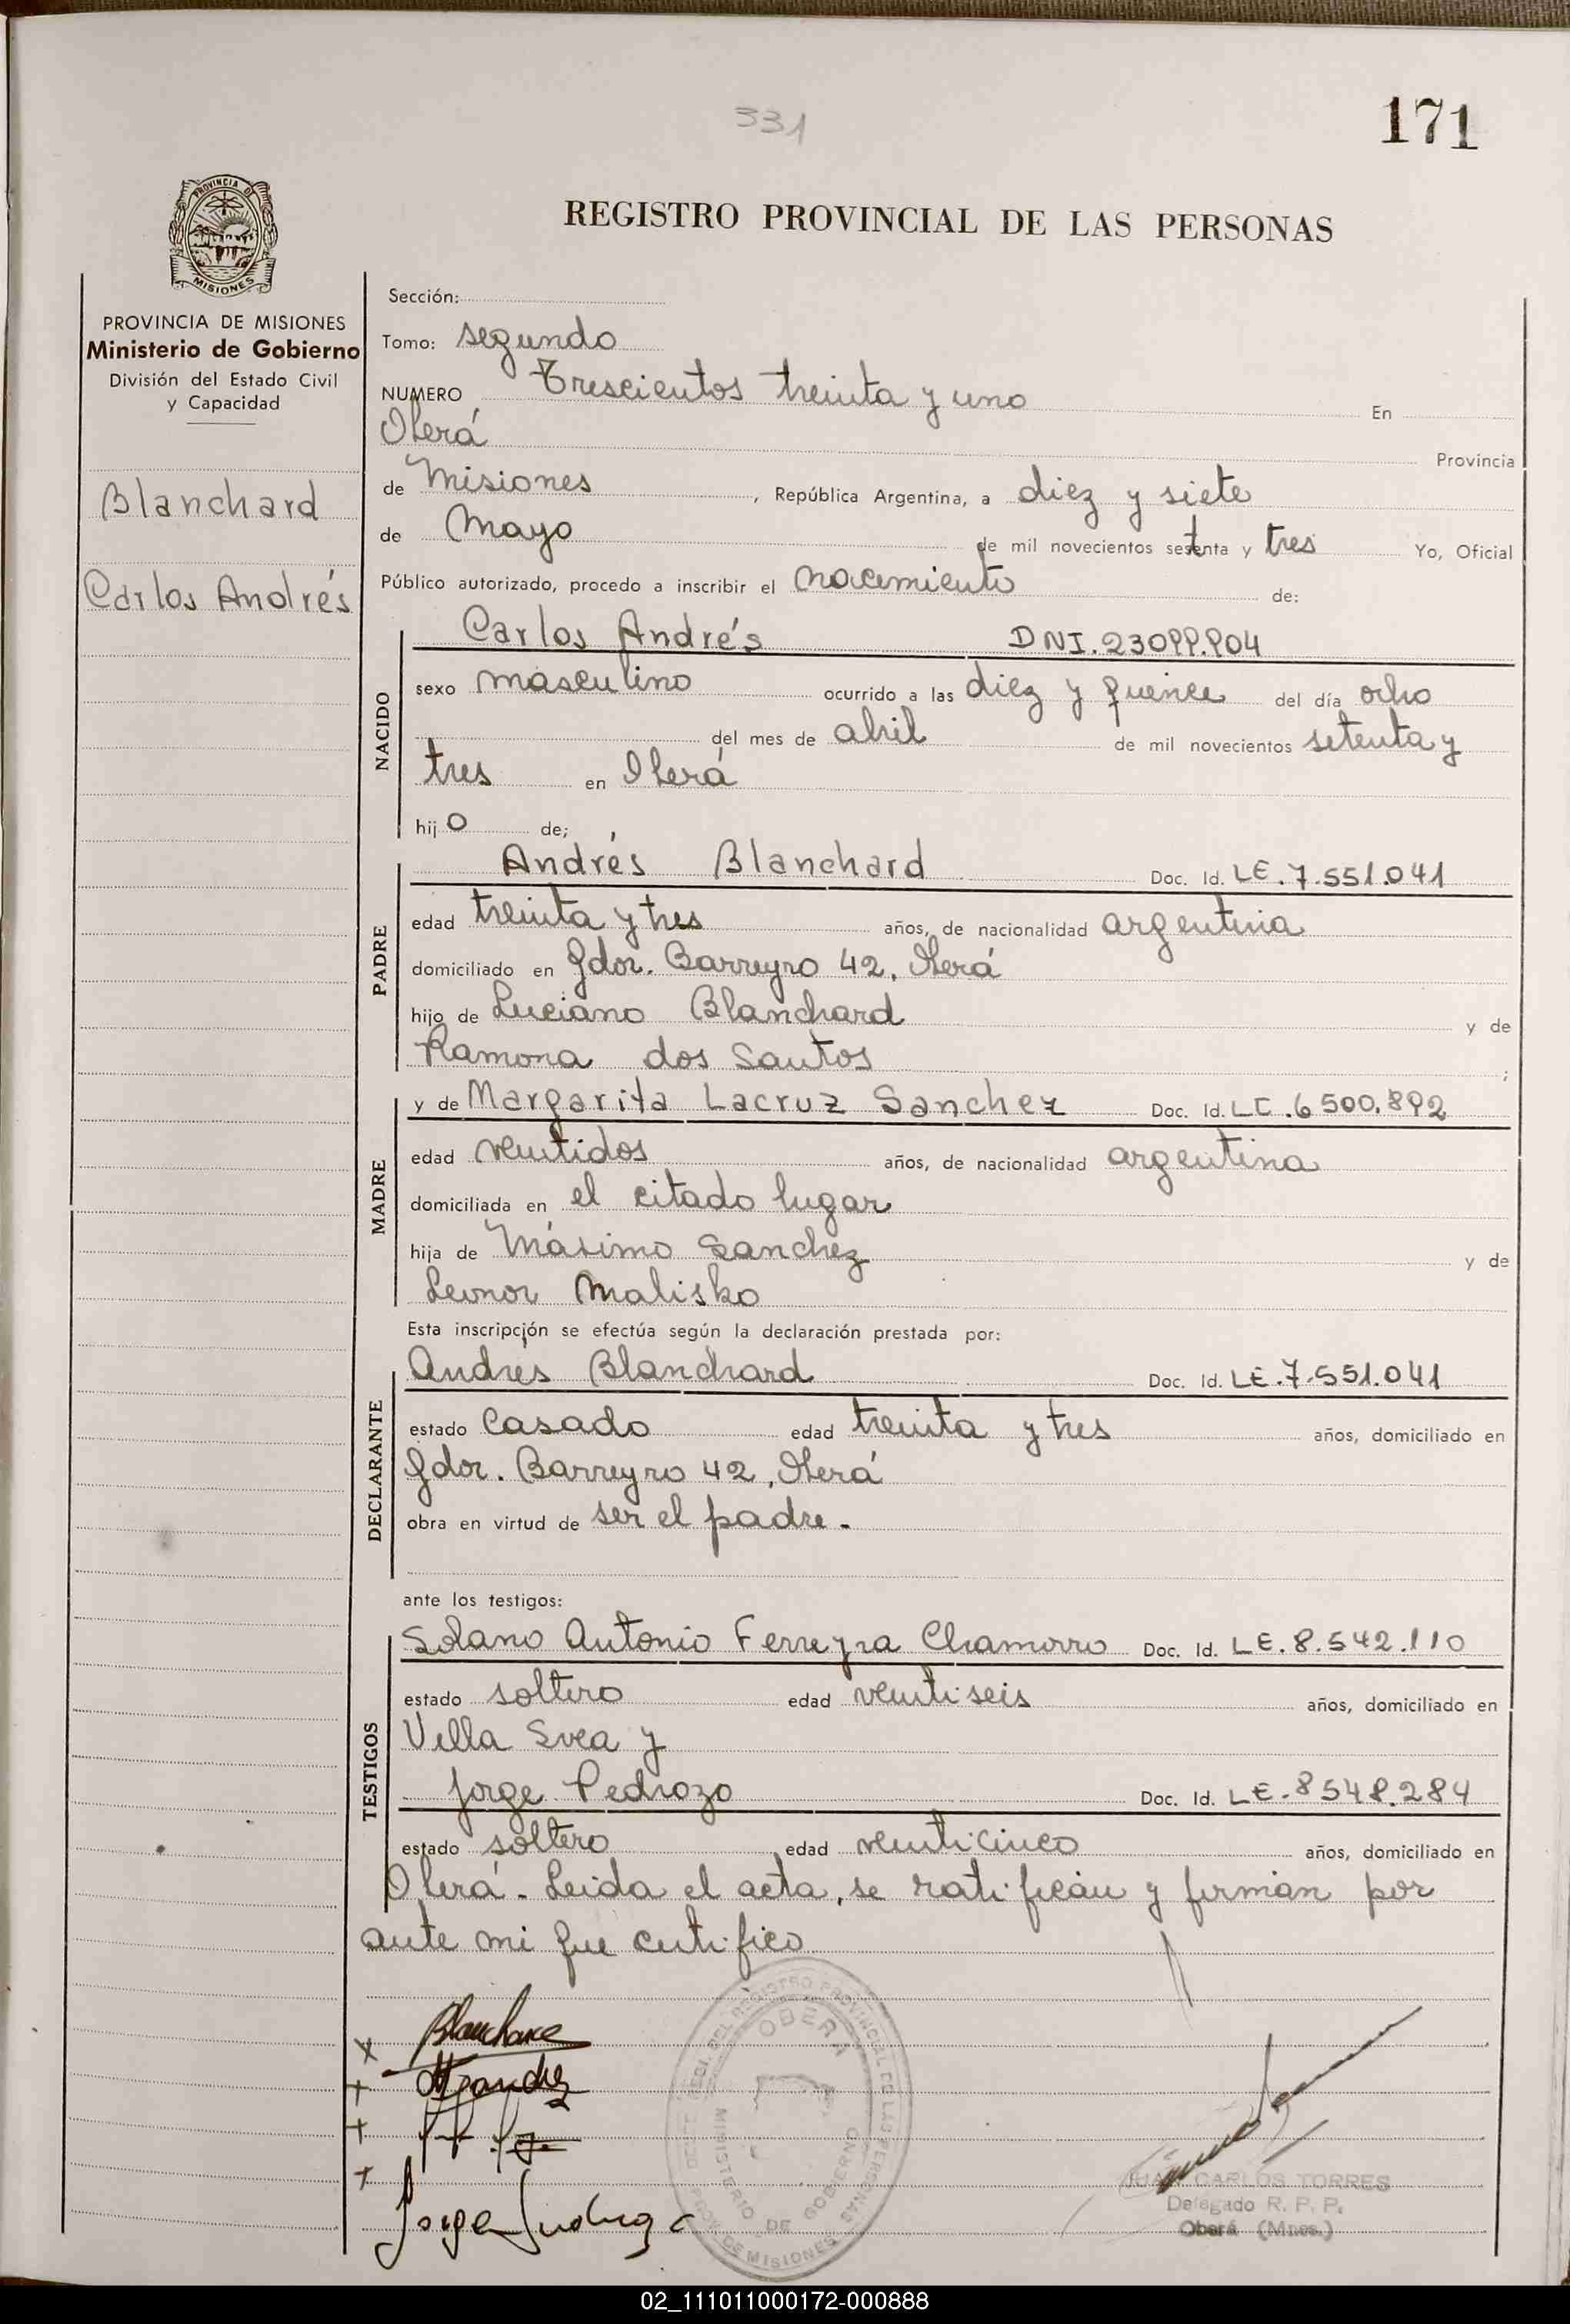 331
171
PROVINCIA DE
MISIONES
REGISTRO PROVINCIAL DE LAS PERSONAS
PROVINCIA DE MISIONES
Ministerio de Gobierno
División del Estado Civil
y Capacidad
Blanchard
Carlos Andrés
Sección:
Tomo: segundo
NUMERO Trescientos treinta y uno En
Oberá Provincia
de Misiones, República Argentina, a diez y siete
de Mayo de mil novecientos setenta y tres Yo, Oficial
Público autorizado, procedo a inscribir el nacimiento de:
NACIDO
Carlos Andrés DNI. 23099.904
sexo masculino ocurrido a las diez y quince del día ocho
del mes de abril de mil novecientos setenta y
tres en Oberá
hijo de;
PADRE
Andrés Blanchard Doc. Id. LE. 7.551.041
edad treinta y tres años, de nacionalidad argentina
domiciliado en Gdor. Barreyro 42, Oberá
hijo de Luciano Blanchard y de
Ramona dos Santos ;
MADRE
y de Margarita Lacruz Sanchez Doc. Id. LC. 6500.892
edad ventidos años, de nacionalidad argentina
domiciliada en el citado lugar
hija de Máximo Sanchez y de
Leonor Malisko
Esta inscripción se efectúa según la declaración prestada por:
DECLARANTE
Andrés Blanchard Doc. Id. LE. 7.551.041
estado casado edad treinta y tres años, domiciliado en
Gdor. Barreyro 42, Oberá
obra en virtud de ser el padre.-
ante los testigos:
TESTIGOS
Solano Antonio Ferreyra Chamorro Doc. Id. LE. 8.542.110
estado soltero edad ventiseis años, domiciliado en
Villa Svea y
Jorge Pedrozo Doc. Id. LE. 8548.284
estado soltero edad venticinco años, domiciliado en
Oberá - Leida el acta, se ratifican y firman por
ante mi que certifico
Blanchard
MSanchez
OBERA
REGISTRO PROVINCIAL DE LAS PERSONAS
MINISTERIO DE GOBIERNO
DE MISIONES
JUAN CARLOS TORRES
Delegado R. P. P.
Oberá (Mnes.)
02_111011000172-000888